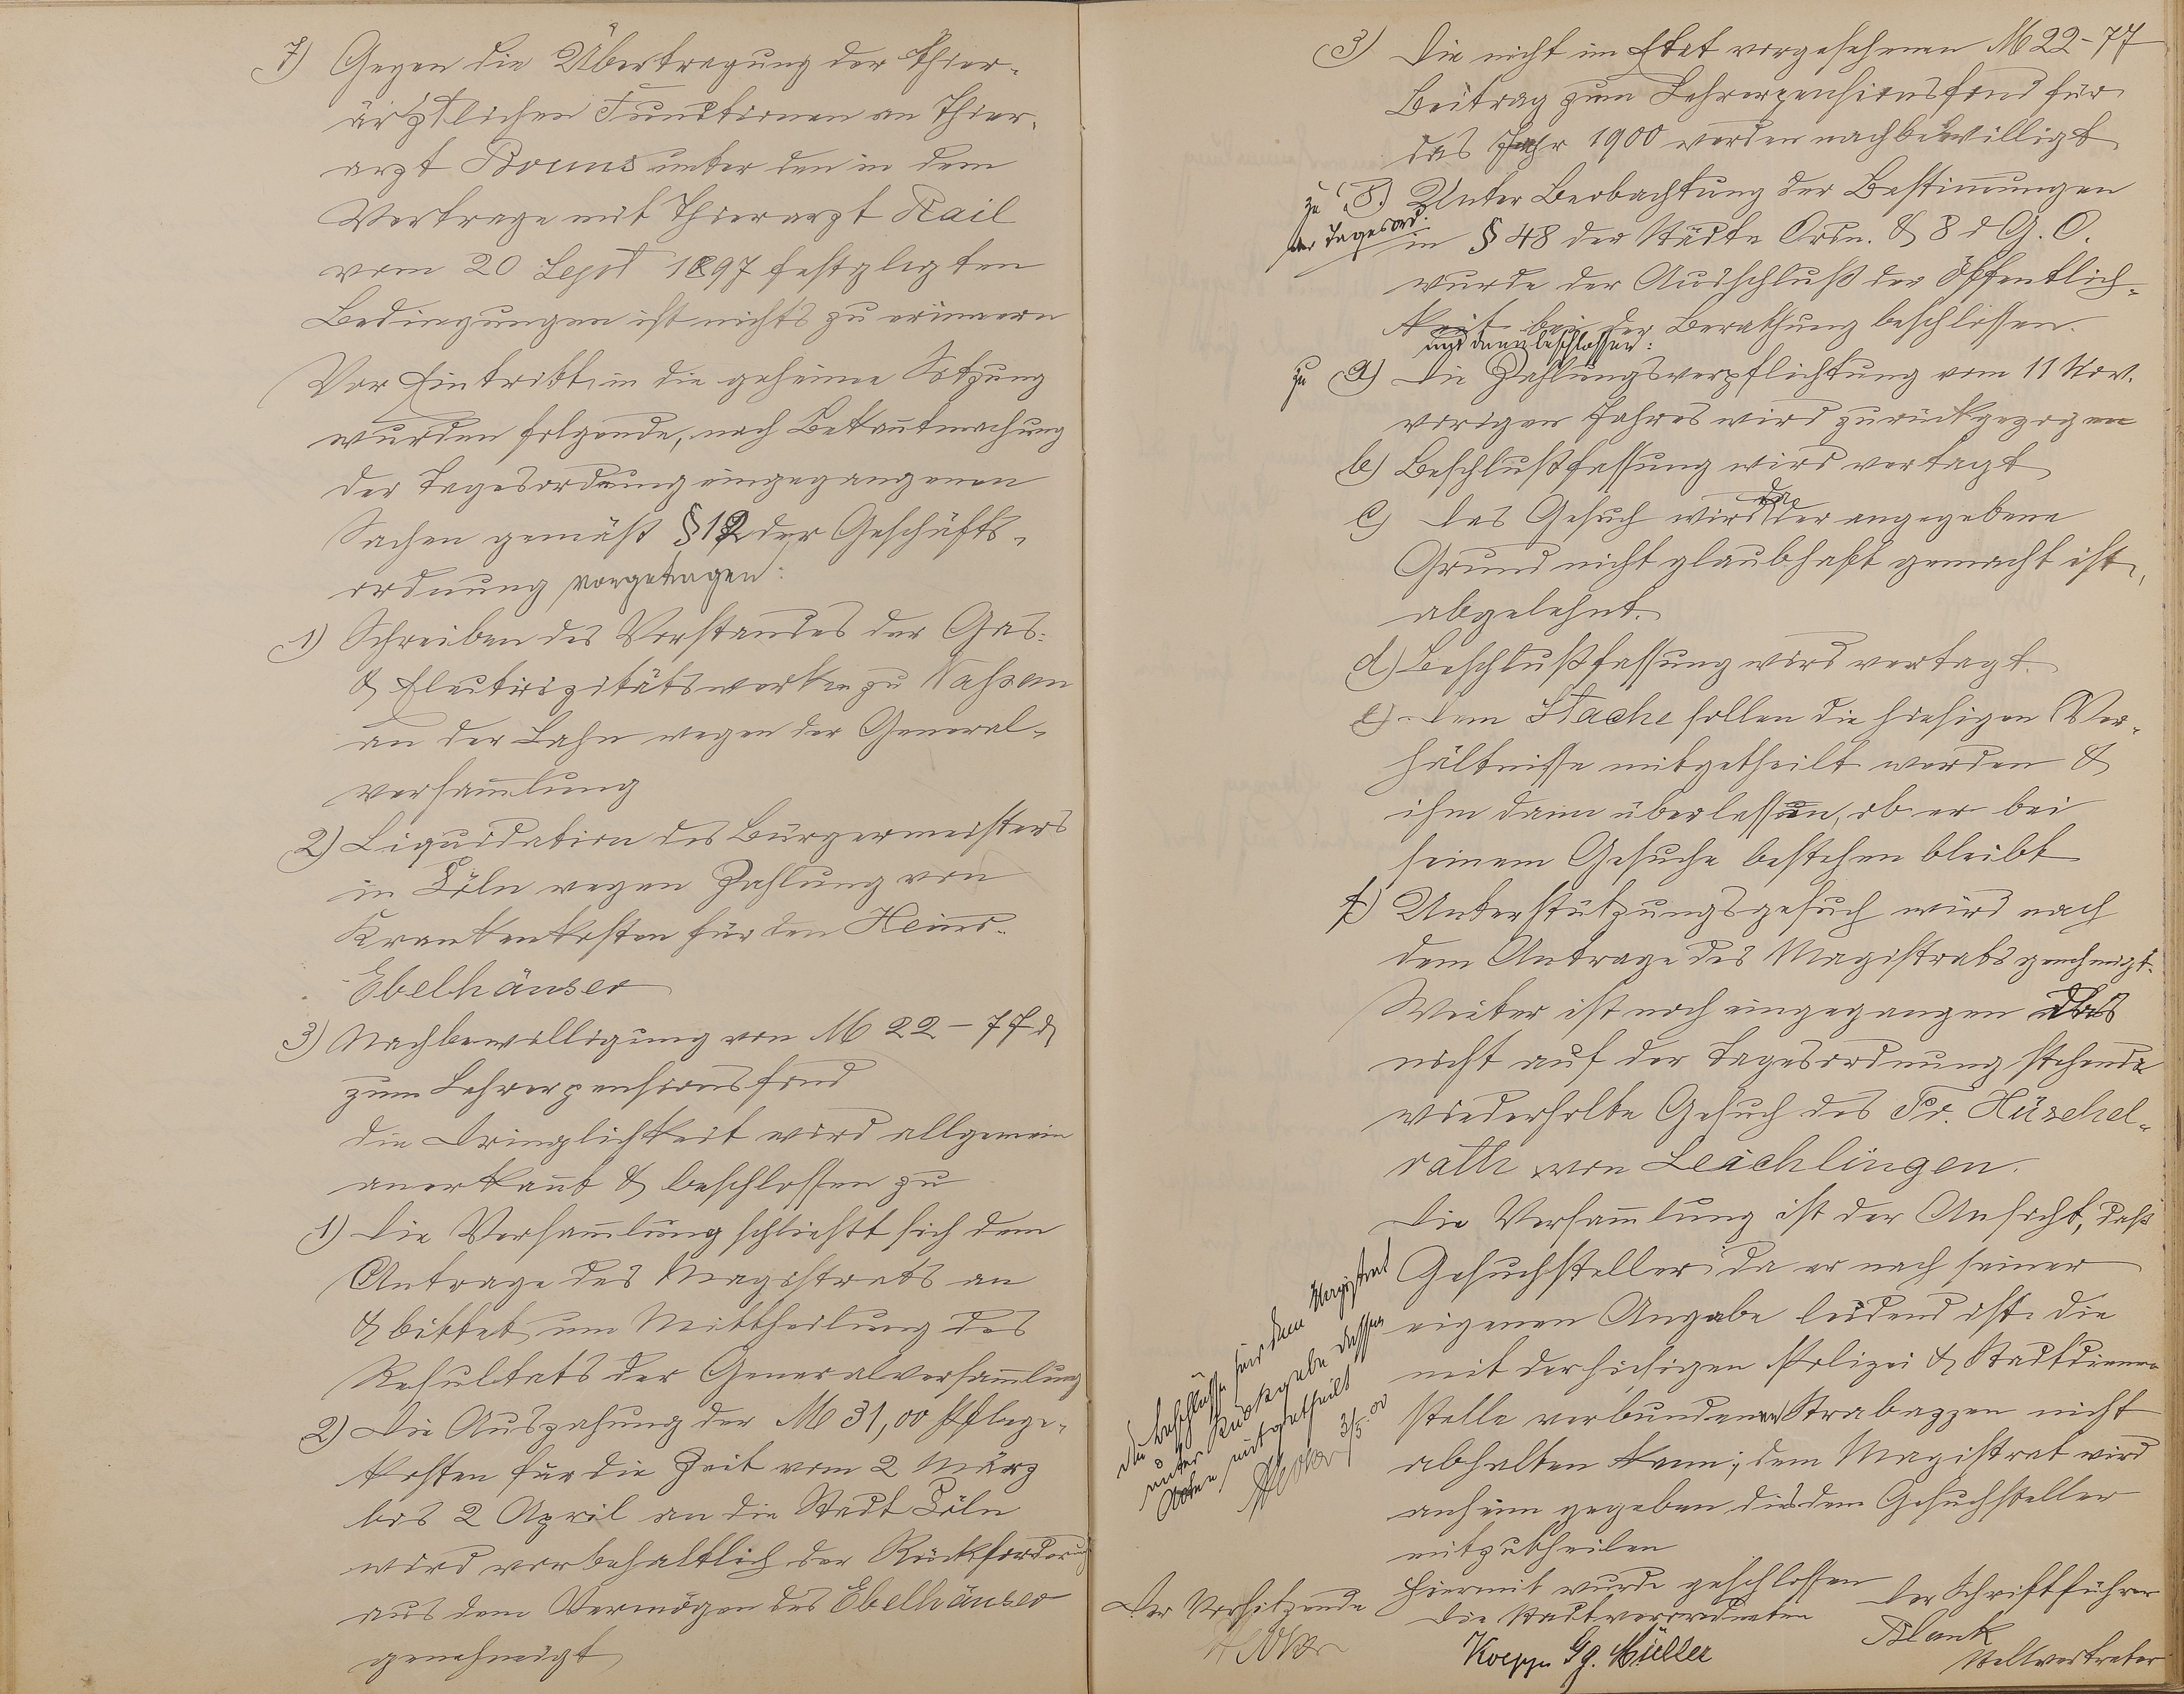 7) Gegen die Übertragung der Thier-
ärztlichen Functionen an Thier-
arzt Bouns unter den in dem
Vertrage mit Thierarzt Kail
vom 20 Sept 1897 festgelegten
Bedingungen ist nichts zu erinnern
Vor Eintritt in die geheime Sitzung
wurden folgende, nach Bekan̄tmachung
der Tagesordnung eingegangenen
Sachen gemäß § 12 der Geschäfts-
ordnung vorgetragen:
1) Schreiben des Vorstandes der Gas-
& Electrizitätswerke zu Nassau
an der Lahn wegen der General-
versam̄lung
2) Liquidation des Bürgermeisters
in Cöln wegen Zahlung von
Krankenkosten für den Heinr.
Ebelhäuser
3) Nachbewilligung von M 22-77 ₰
zum Lehrerpensionsfond
die Dringlichkeit wird allgemein
anerkan̄t & beschlossen zu
1) Die Versam̄lung schließt sich dem
Antrage des Magistrats an
& bittet um Mittheilung des
Resultats der Generalversam̄lung
2) Die Auszahung der M 31,00 Pflege-
kosten für die Zeit vom 2 März
bis 2 April an die Stadt Cöln
wird vorbehaltlich der Rückforderung
aus dem Vermögen des Ebelhäuser
genehmigt
3) Die nicht im Etat vorgesehenen M 22-77
Beitrag zum Lehrerpensionsfond für
das Jahr 1900 werden nachbewilligt
zu 8) Unter Beobachtung der Bestim̄ungen
der Tagesord. in § 48 der Städte Ordn. & 8 d G. O.
wurde der Ausschluß der Öffentlich-
keit bei der Berathung beschlossen.
und dann beschlossen:
zu a) Die Zahlungsverpflichtung vom 11 Nov.
vorigen Jahres wird zurückgezogen
b) Beschlußfassung wird vertagt
c) Das Gesuch wird da der angegebene
Grund nicht glaubhaft gemacht ist,
abgelehnt.
d) Beschlußfassung wird vertagt.
e) Dem Stache sollen die hiesigen Ver-
hältnisse mitgetheilt werden &
ihm dann überlassen, ob er bei
seinem Gesuche bestehen bleibt
f) Unterstützungsgesuch wird nach
dem Antrage des Magistrats genehmigt.
Weiter ist noch eingegangen das
nicht auf der Tagesordnung stehende
wiederholte Gesuch des Fr. Hüschel-
rath von Leichlingen.
Die Versam̄lung ist der Ansicht, daß
Gesuchsteller da er nach seiner
eigenen Angabe leidend ist die
mit der hiesigen Polizei & Stadtdiener
stelle verbundenen Strabazzen nicht
abhalten kann; dem Magistrat wird
anheim gegeben dies dem Gesuchsteller
mitzutheilen
Die Beschlüsse sind dem Magistrat
unter Rückgabe dessen
Akten mitgetheilt
3/5.00
Hiermit wurde geschlossen
Der Vorsitzende
Die Stadtverordneten
Koepp Gg. Müller
Der Schriftführer
Blank
Stellvertreter